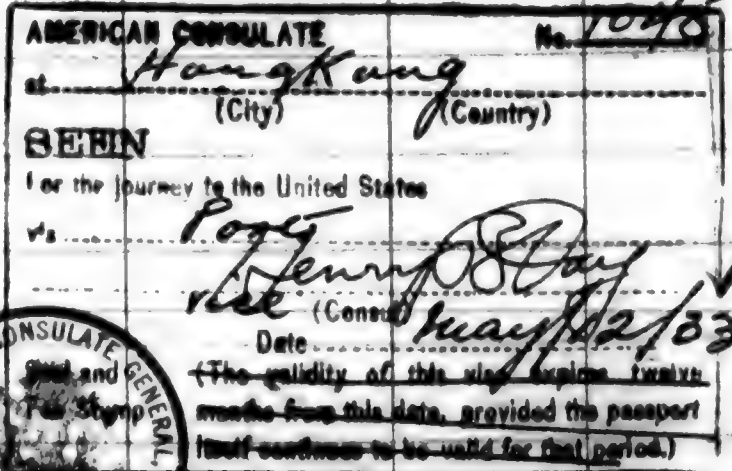 AMERICAN CONSULATE No. 1045
at HongKong
(City) (Country)
SEEN
For the journey to the United States
via Ports
Henry B Day
vice (Consul)
Date May 12/33
CONSULATE GENERAL
and Fee Stamp
(The validity of this visa expires twelve
months from this date, provided the passport
itself continues to be valid for that period.)